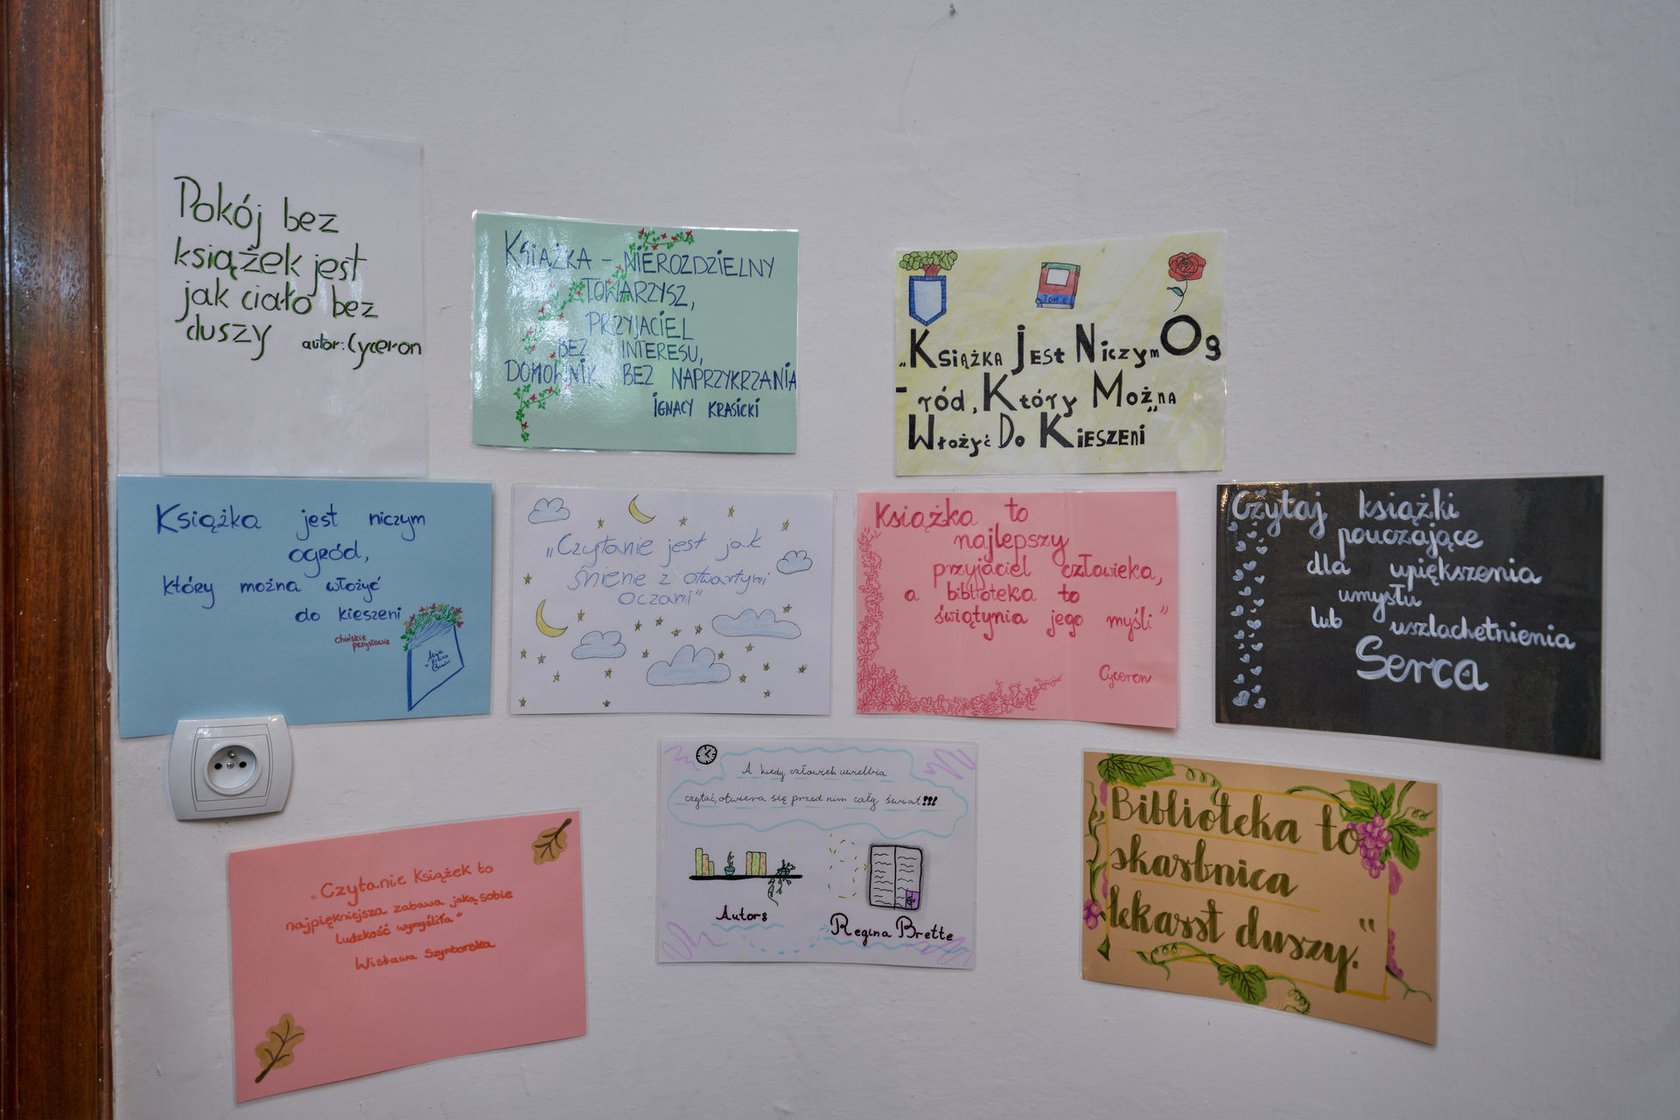 Pokój bez
książek jest
jak ciało bez
duszy autor: Cyceron
KSIĄŻKA - NIEROZDZIELNY
TOWARZYSZ,
PRZYJACIEL
BEZ INTERESU,
DOMOWNIK BEZ NAPRZYKRZANIA
IGNACY KRASICKI
TOM II
„Książka Jest Niczym Og
- ród, Który Można
Włożyć Do Kieszeni"
Książka jest niczym
ogród,
który można włożyć
do kieszeni
chińskie
przysłowie
„Czytanie jest jak
śnienie z otwartymi
oczami"
Książka to
najlepszy
przyjaciel człowieka,
a biblioteka to
świątynia jego myśli"
Cyceron
Czytaj książki
pouczające
dla upiększenia
umysłu
lub uszlachetnienia
Serca
A kiedy człowiek uwielbia
czytać, otwiera się przed nim cały świat!!!
Autors
Regina Brette
„Biblioteka to
skarbnica
lekarst duszy."
„Czytanie książek to
najpiękniejsza zabawa jaką sobie
ludzkość wymyśliła"
Wisława Szymborska